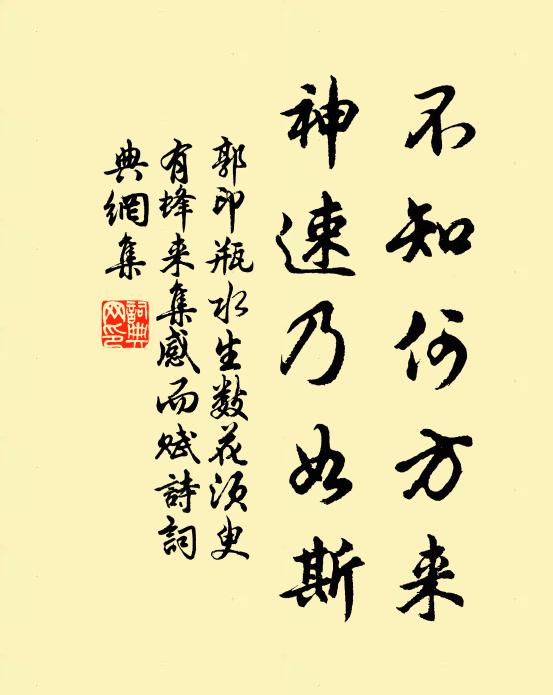 不知何方来
神速乃如斯
郭印瓶水生数花须臾
有蜂来集感而赋诗詞
典網集
詞典網印